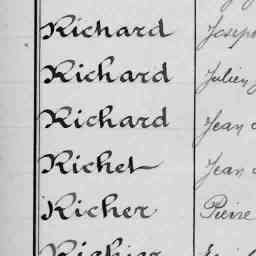 Richard Joseph
Richard Julien
Richard Jean
Richet Jean
Richer Pierre
Richier